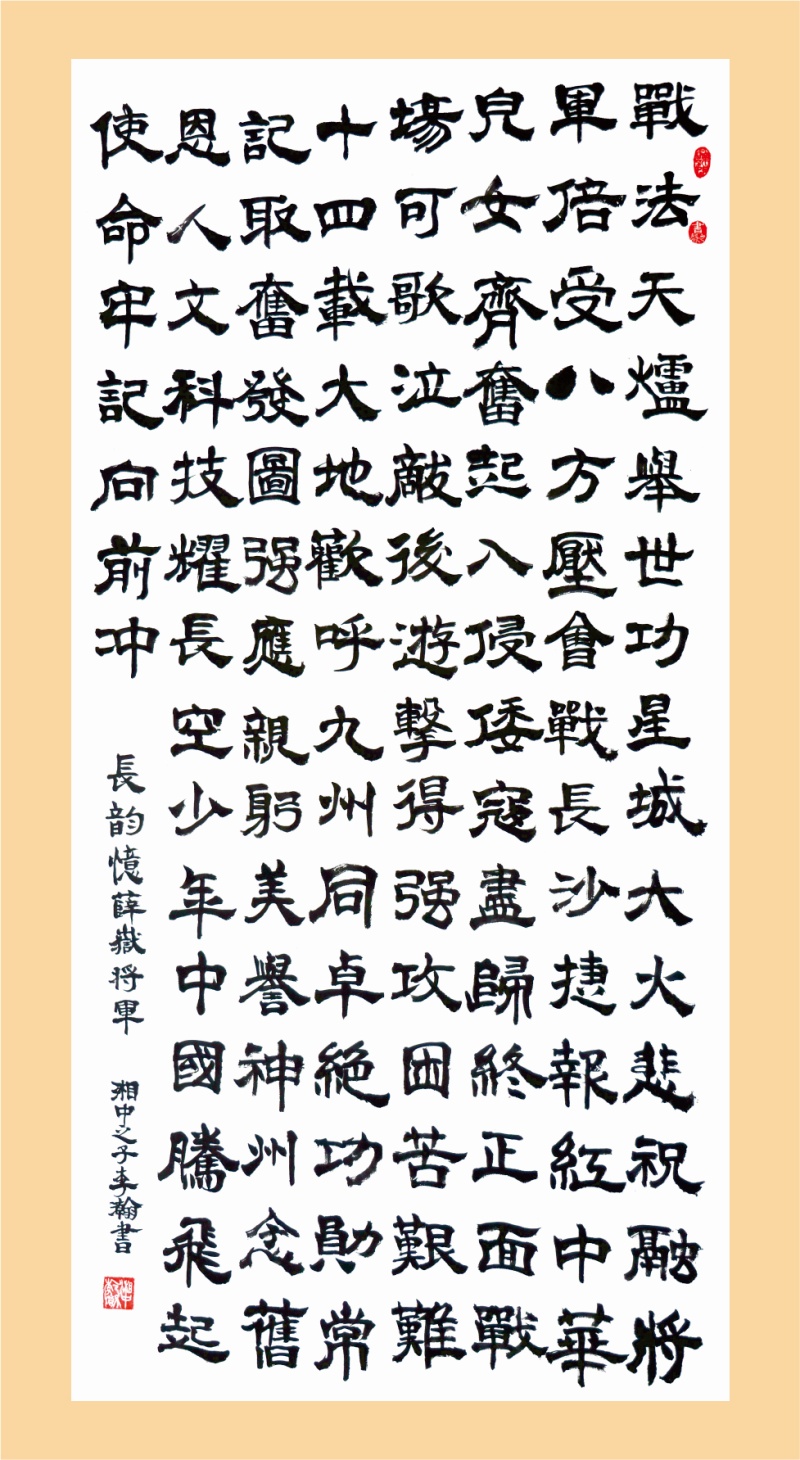 戰法天爐舉世功星城大火悲祝融將
軍倍受八方壓會戰長沙捷報紅中華
兒女齊奮起入侵倭寇盡歸終正面戰
場可歌泣敵後遊擊得强攻困苦艱難
十四載大地歡呼九州同卓絶功勛常
記取奮發圖强應親躬美譽神州念舊
恩人文科技耀長空少年中國騰飛起
使命牢記向前冲
長韵憶薛嶽將軍
湘中之子李翰書